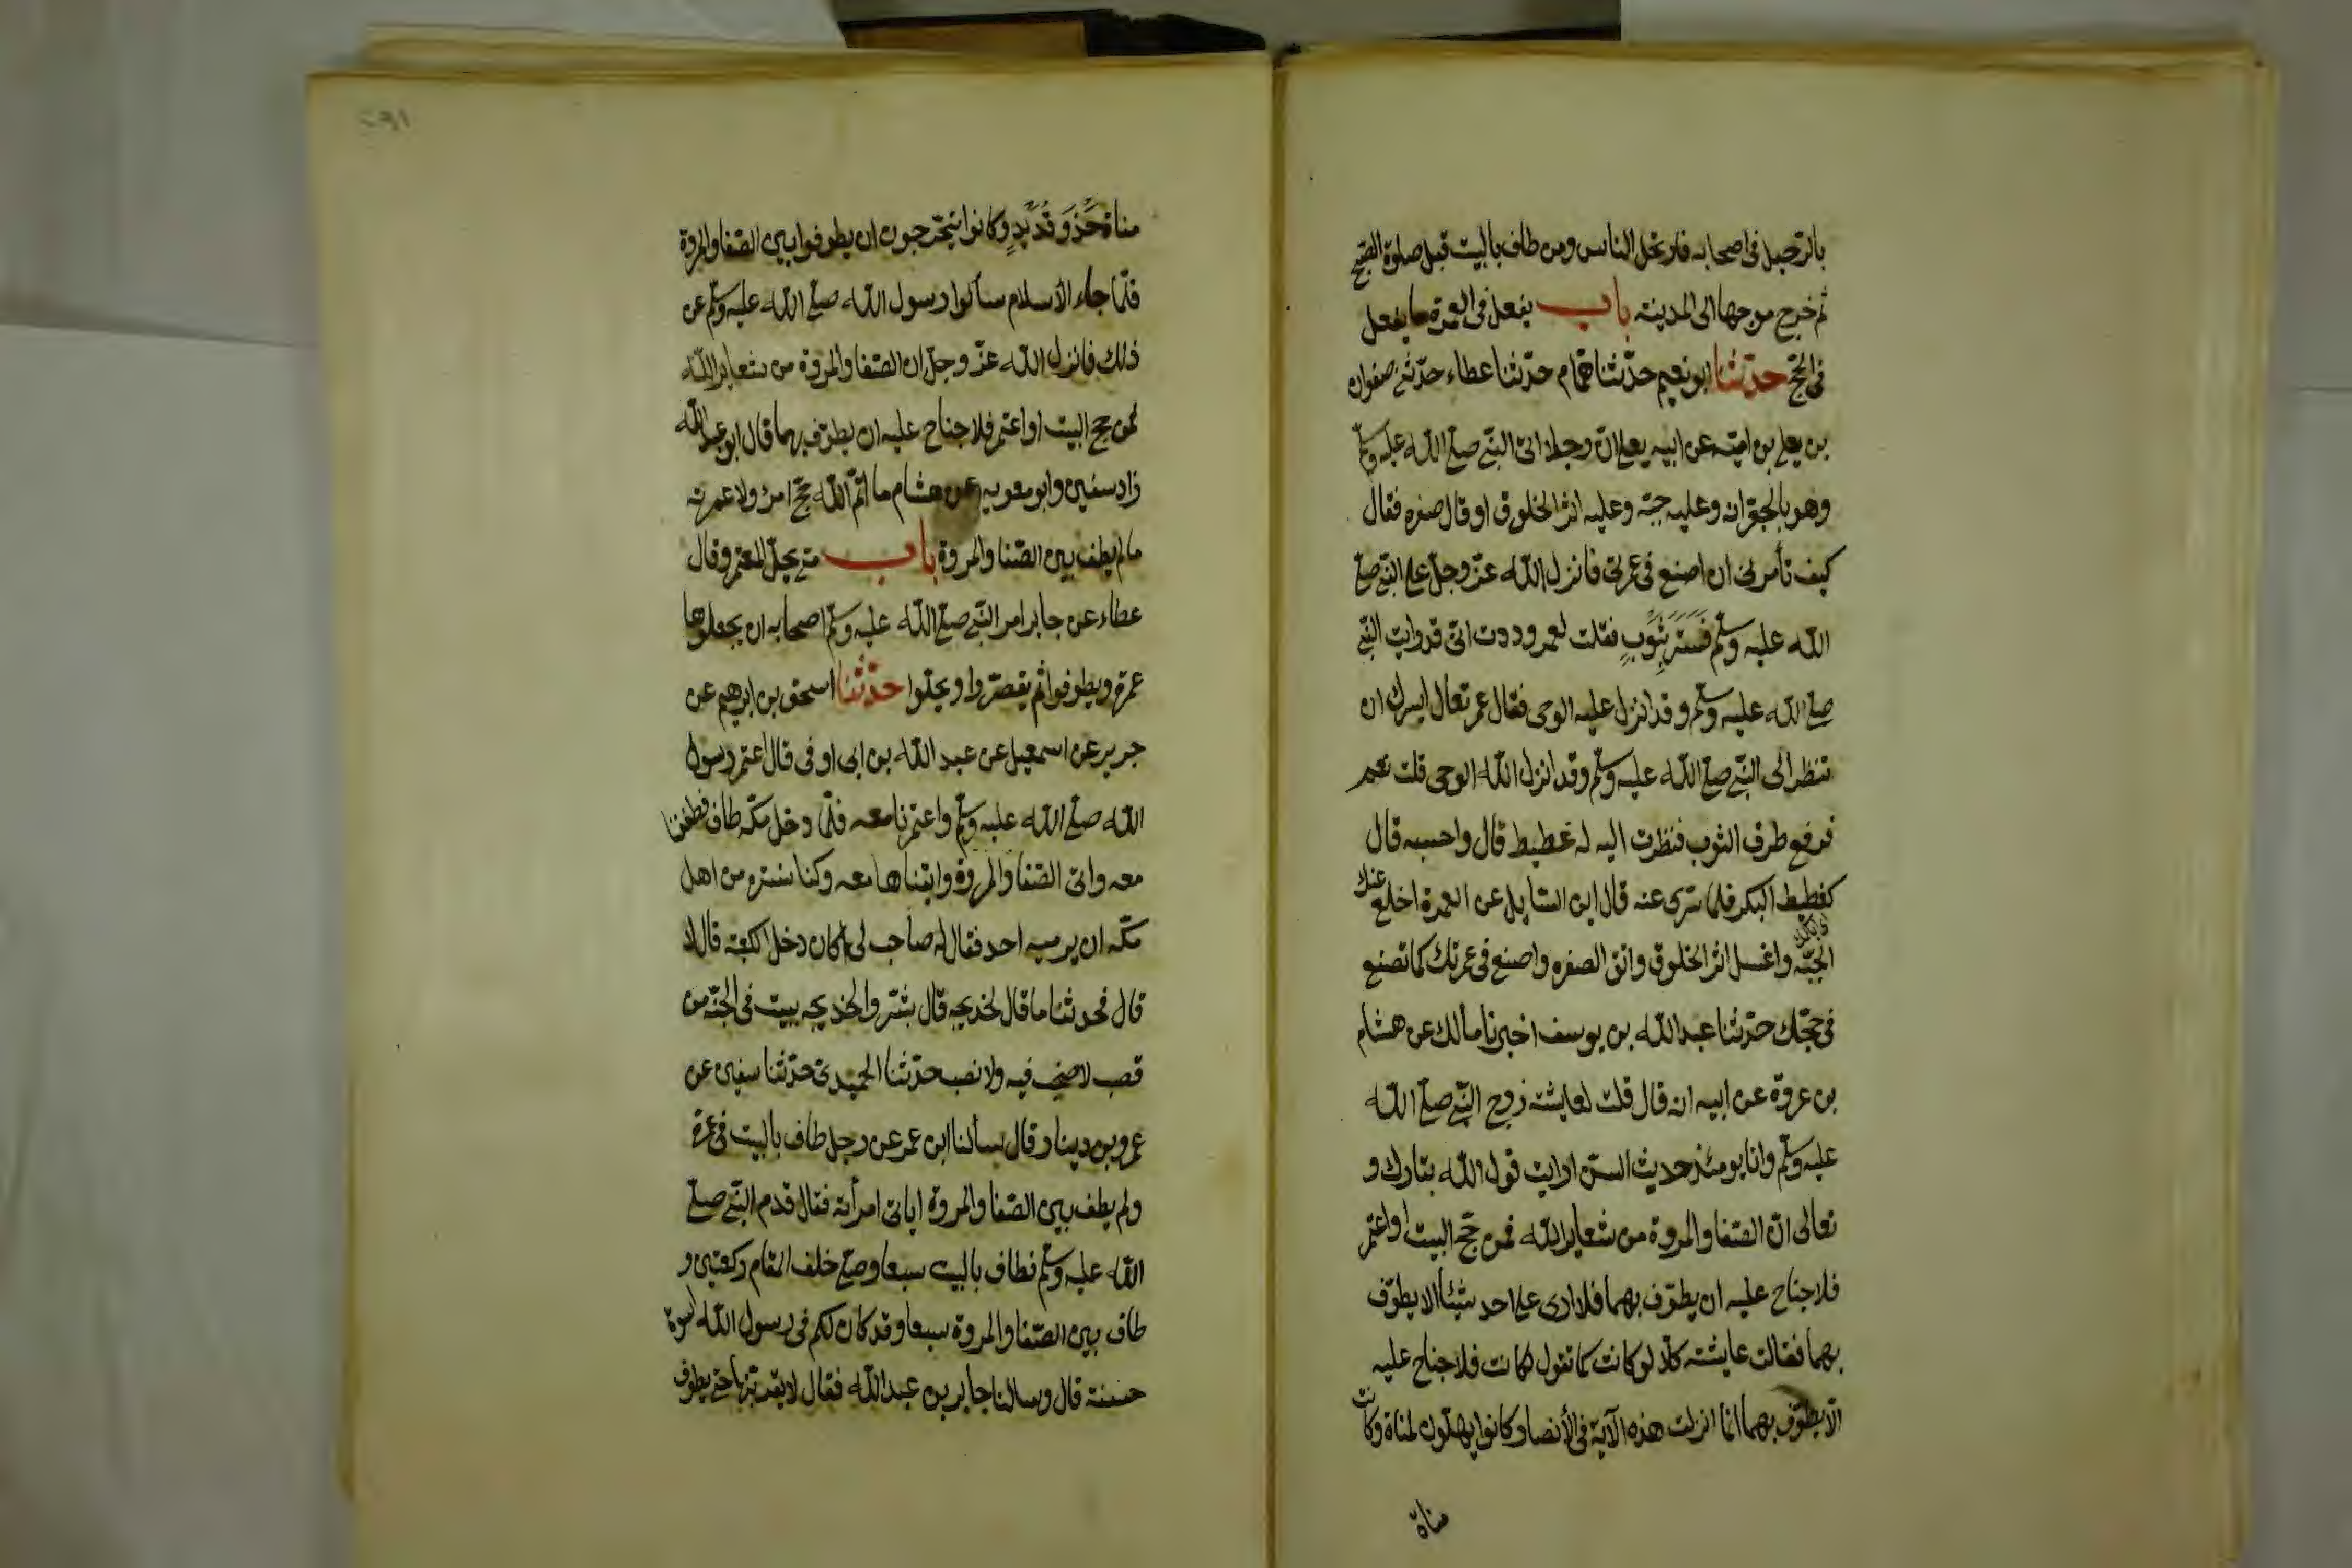 بالرحيل فى اصحابه فارتحل الناس ومن طاف بالبيت قبل صلوة الصبح
ثم خرج موجها الى المدينة باب يفعل فى العمرة ما يفعل
فى الحج حدثنا ابو نعيم حدثنا همام حدثنا عطاء حدثنى صفوان
بن يعلى بن امية عن ابيه يعلى ان رجلا اتى النبى صلى الله عليه وسلم
وهو بالجعرانه وعليه جبة وعليه اثر الخلوق او قال صفره فقال
كيف تأمرنى ان اصنع فى عمرتى فانزل الله عز وجل على النبى صلى
الله عليه وسلم فَسُتِرَ بِثَوْبٍ فقلت لعمر وددت انى قد رايت النبى
صلى الله عليه وسلم وقد انزل عليه الوحى فقال عمر تعال ايسرك ان
تنظر الى النبى صلى الله عليه وسلم وقد انزل الله الوحى قلت نعم
فرفع طرف الثوب فنظرت اليه له غطيط قال واحسبه قال
كغطيط البكر فلما سرى عنه قال اين السايل عن العمرة اخلع عنك
الجبة واغسل اثر الخلوق وانق الصفره واصنع فى عمرتك كما تصنع
فى حجك حدثنا عبد الله بن يوسف اخبرنا مالك عن هشام
بن عروة عن ابيه انه قال قلت لعايشة زوج النبى صلى الله
عليه وسلم وانا يومئذ حديث السن ارايت قول الله تبارك و
تعالى ان الصفا والمروة من شعاير الله فمن حج البيت او اعتمر
فلا جناح عليه ان يطوف بهما فلا ارى على احد شيئا الا يطوف
بهما فقالت عايشة كلا لو كانت كما تقول كانت فلا جناح عليه
الا يطوف بهما انما انزلت هذه الآية فى الأنصار كانوا يهلون لمناة وكانت
مناة
مناة حَذْوَ قُدَيْدٍ وكانوا يتحرجون ان يطوفوا بين الصفا والمروة
فلما جاء الاسلام سألوا رسول الله صلى الله عليه وسلم عن
ذلك فانزل الله عز وجل ان الصفا والمروة من شعاير الله
فمن حج البيت او اعتمر فلا جناح عليه ان يطوف بهما قال ابو عبد الله
زاد سفين وابو معويه عن هشام ما اتم الله حج امرئ ولا عمرته
ما لم يطف بين الصفا والمروة باب متى يحل المعتمر وقال
عطاء عن جابر امر النبى صلى الله عليه وسلم اصحابه ان يجعلوها
عمرة ويطوفوا ثم يقصروا ويحلوا حدثنا اسحق بن ابرهيم عن
جرير عن اسمعيل عن عبد الله بن ابى اوفى قال اعتمر رسول
الله صلى الله عليه وسلم واعتمرنا معه فلما دخل مكة طاف فطفنا
معه واتى الصفا والمروة واتيناها معه وكنا نستره من اهل
مكه ان يرميه احد فقال له صاحب لى اكان دخل الكعبة قال لا
قال فحدثنا ما قال لخديجه قال بشروا لخديجه ببيت فى الجنة من
قصب لا صخب فيه ولا نصب حدثنا الحميدى حدثنا سفين عن
عمرو بن دينار قال سألنا ابن عمر عن رجل طاف بالبيت فى عمرة
ولم يطف بين الصفا والمروة اياتى امرأته فقال قدم النبى صلى
الله عليه وسلم فطاف بالبيت سبعا وصلى خلف المقام ركعتين و
طاف بين الصفا والمروة سبعا وقد كان لكم فى رسول الله اسوة
حسنة قال وسالنا جابر بن عبد الله فقال لا يقربنها حتى يطوف